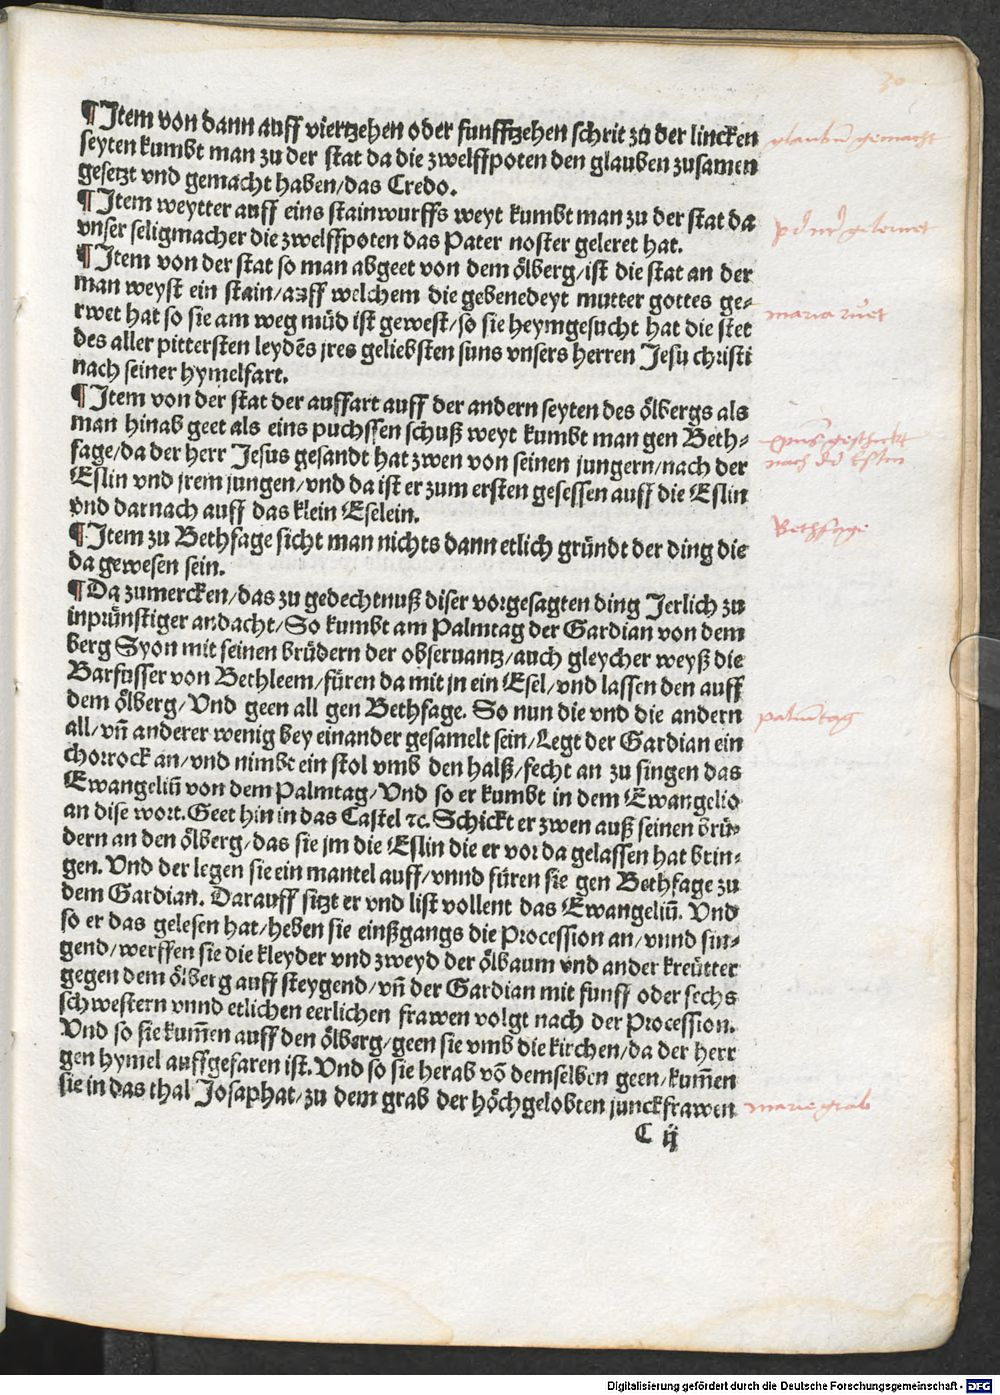 30
¶Item von dann auff viertzehen oder funfftzehen schrit zů der lincken
seyten kumbt man zu der stat da die zwelffpoten den glauben zusamen
gesetzt vnd gemacht haben/das Credo.
¶Item weytter auff eins stainwurffs weyt kumbt man zu der stat da
vnser seligmacher die zwelffpoten das Pater noster geleret hat.
¶Item von der stat so man abgeet von dem ölberg/ist die stat an der
man weyst ein stain/auff welchem die gebenedeyt mutter gottes ge⸗
rwet hat so sie am weg müd ist gewest/so sie heymgesucht hat die stet
des aller pittersten leydēs jres geliebsten suns vnsers herren Jesu christi
nach seiner hymelfart.
¶Item von der stat der auffart auff der andern seyten des ölbergs als
man hinab geet als eins puchssen schuß weyt kumbt man gen Beth⸗
fage/da der herr Jesus gesandt hat zwen von seinen jungern/nach der
Eslin vnd jrem jungen/vnd da ist er zum ersten gesessen auff die Eslin
vnd darnach auff das klein Eselein.
¶Item zu Bethfage sicht man nichts dann etlich gründt der ding die
da gewesen sein.
¶Da zumercken/das zu gedechtnuß diser vorgesagten ding Jerlich zu
inprünstiger andacht/So kumbt am Palmtag der Gardian von dem
berg Syon mit seinen brüdern der obseruantz/auch gleycher weyß die
Barfusser von Bethleem/füren da mit jn ein Esel/vnd lassen den auff
dem ölberg/Vnd geen all gen Bethfage. So nun die vnd die andern
all/vñ anderer wenig bey einander gesamelt sein/Legt der Gardian ein
chorrock an/vnd nimbt ein stol vmb den halß/fecht an zu singen das
Ewangeliū von dem Palmtag/Vnd so er kumbt in dem Ewangelio
an dise wort. Geet hin in das Castel ⁊c. Schickt er zwen auß seinen brü⸗
dern an den ölberg/das sie jm die Eslin die er vor da gelassen hat brin⸗
gen. Vnd der legen sie ein mantel auff/vnnd füren sie gen Bethfage zu
dem Gardian. Darauff sitzt er vnd list vollent das Ewangeliū. Vnd
so er das gelesen hat/heben sie einßgangs die Procession an/vnnd sin⸗
gend/werffen sie die kleyder vnd zweyd der ölbaum vnd ander kreütter
gegen dem ölberg auff steygend/vñ der Gardian mit funff oder sechs
schwestern vnnd etlichen eerlichen frawen volgt nach der Procession.
Vnd so sie kum̄en auff den ölberg/geen sie vmb die kirchen/da der herr
gen hymel auffgefaren ist. Vnd so sie herab vō demselben geen/kum̄en
sie in das thal Josaphat/zu dem grab der höchgelobten junckfrawen
C ij
glaubn̄ gemacht
gelernet
maria ruet
geschickt
nach Eslin
Bethfage
palmtag
marie grab
Digitalisierung gefördert durch die Deutsche Forschungsgemeinschaft - DFG